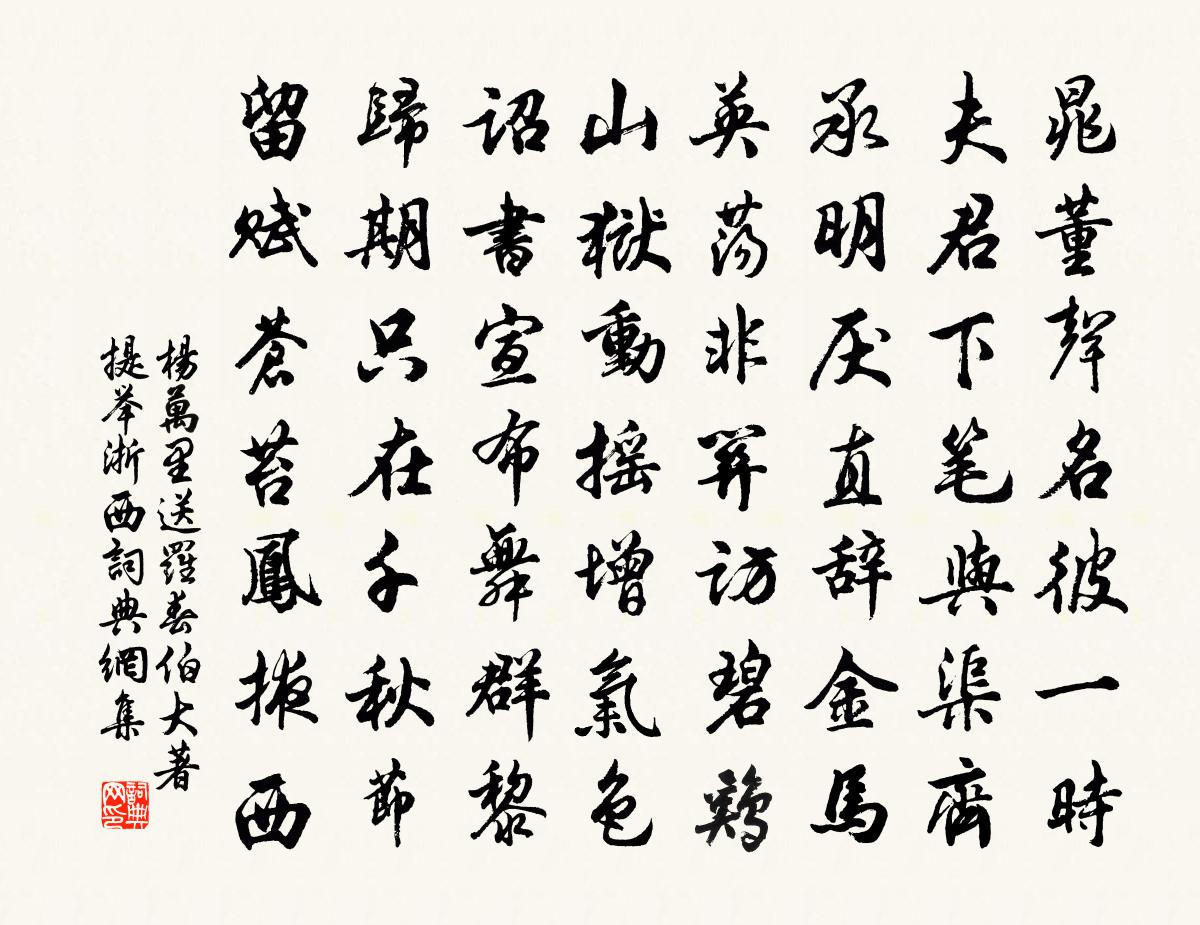 晁董聲名彼一時
夫君下笔與渠齊
承明厌直辞金馬
英蕩非專訪碧鷄
山嶽動摇增氣色
詔書宣布舞群黎
歸期只在千秋節
留賦蒼苔鳳掖西
楊萬里送羅春伯大著
提举浙西詞典網集
詞典网印